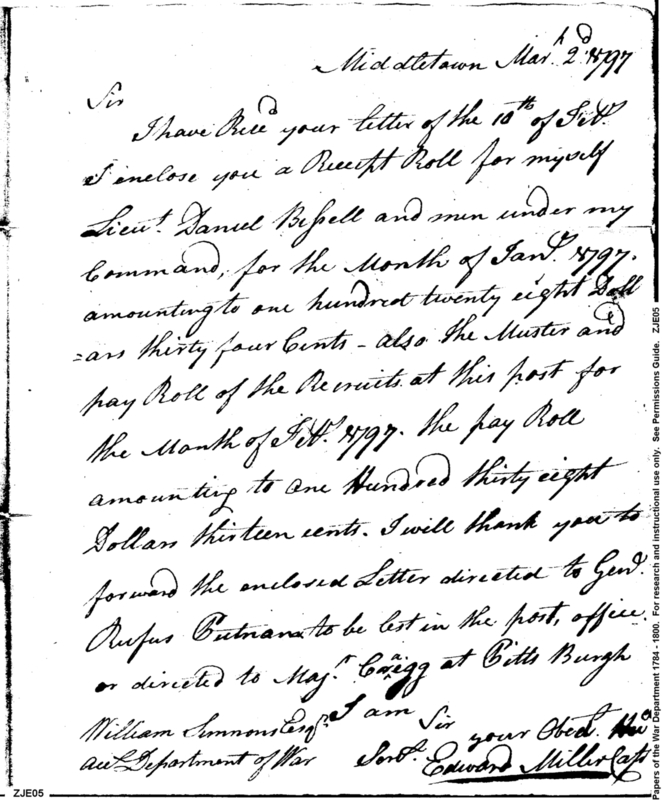 Middletown Mar.h 2d 1797
Sir
I have Rece'd your letter of the 10th of Feb.y
I enclose you a Receipt Roll for myself
Lieut. Daniel Bissell and men under my
Command, for the Month of Jan.y 1797.
amounting to one hundred twenty eight Doll
=ars thirty four Cents - also the Muster and
pay Roll of the Recruits at this post for
the Month of Feb.y 1797. the pay Roll
amounting to one Hundred thirty eight
Dollars thirteen cents. I will thank you to
forward the enclosed Letter directed to Genl.
Rufus Putnam to be lest in the post, office
or directed to Maj.r Craigg at Pitts Burgh
I am Sir your Obed.t
William Simmons Esq.r
Servt.
acct Department of War
Edward Miller Capt
ZJE05
Papers of the War Department 1784 - 1800. For research and instructional use only. See Permissions Guide. ZJE05